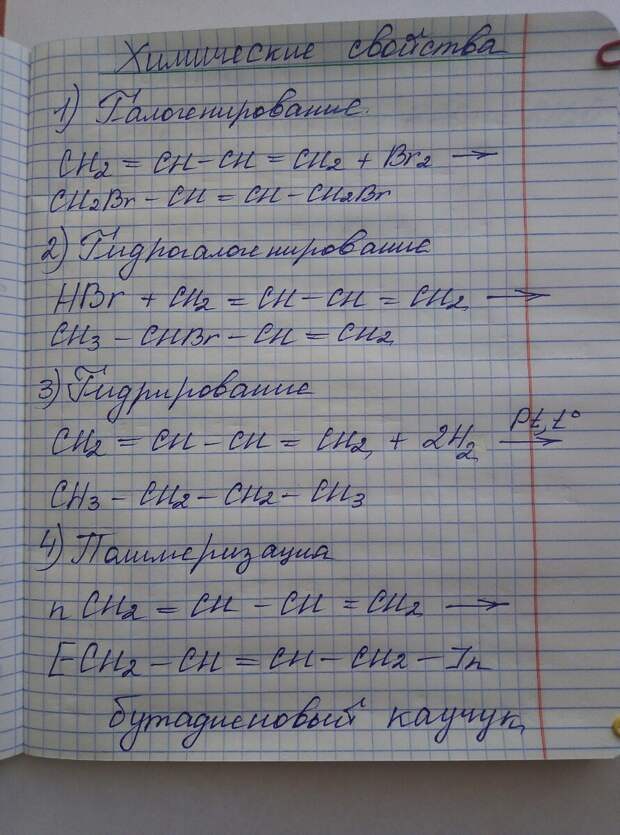 Химические свойства
1) Галогенирование.
CH2 = CH – CH = CH2 + Br2 →
CH2Br – CH = CH – CH2Br
2) Гидрогалогенирование
HBr + CH2 = CH – CH = CH2 →
CH3 – CHBr – CH = CH2
3) Гидрирование
Pt, t°
CH2 = CH – CH = CH2 + 2H2 →
CH3 – CH2 – CH2 – CH3
4) Полимеризация
n CH2 = CH – CH = CH2 →
[– CH2 – CH = CH – CH2 – ]n
бутадиеновый каучук